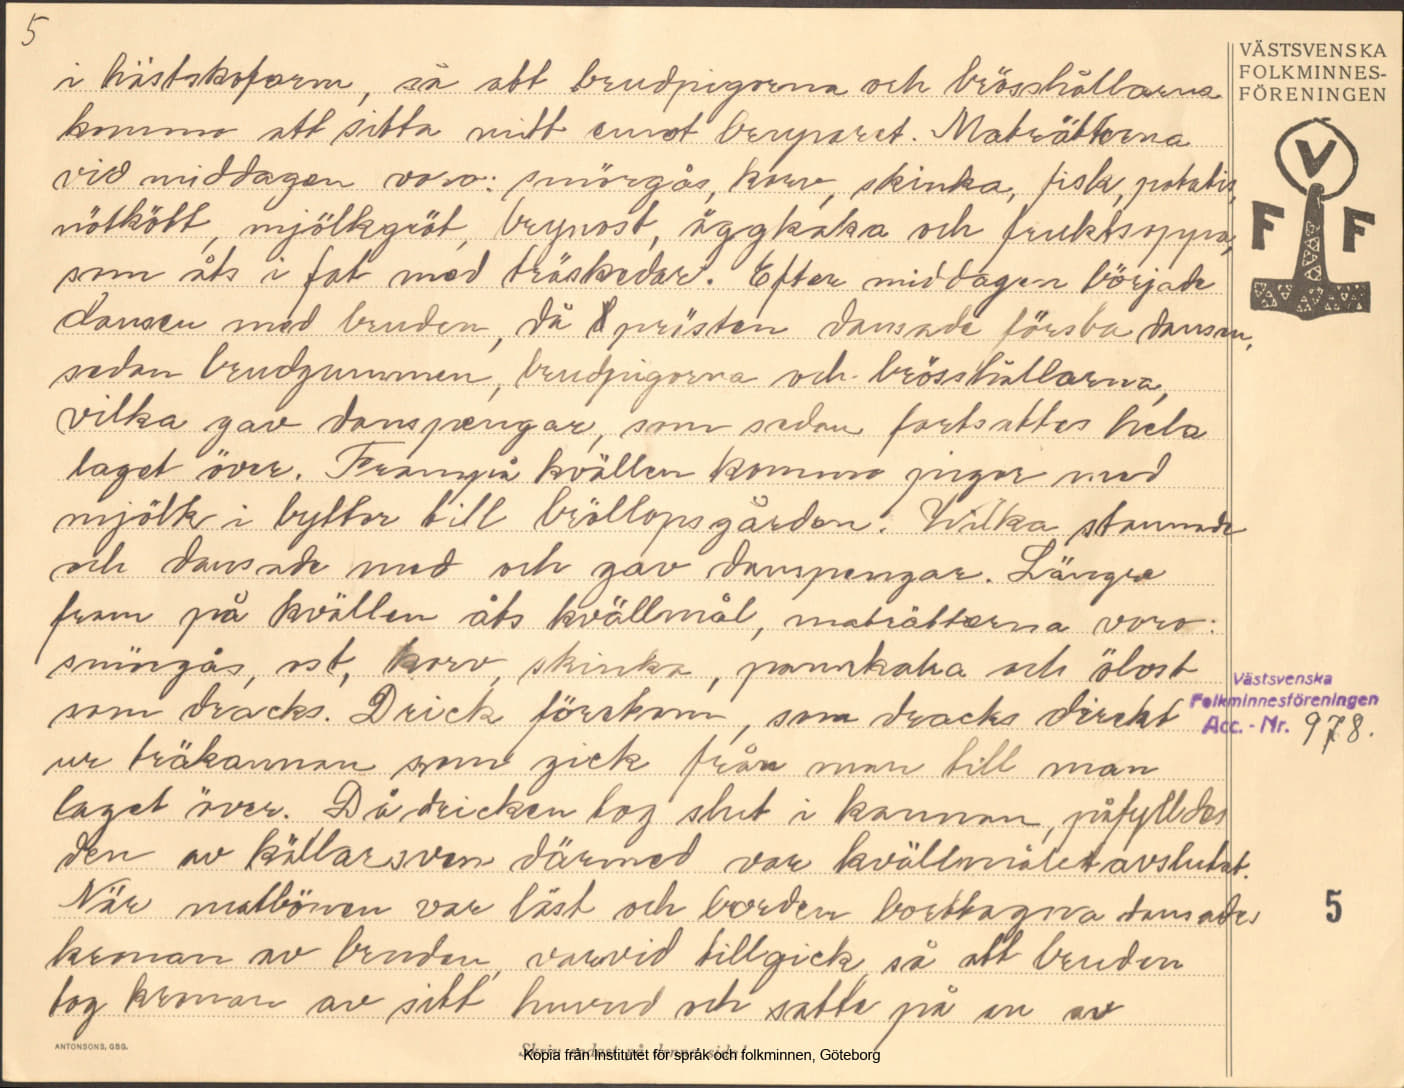 5
VÄSTSVENSKA
FOLKMINNES-
FÖRENINGEN
i hästskoform, så att brudpigorna och brösshållarna
kommo att sitta mitt emot bruparet. Maträtterna
vid middagen voro: smörgås, korv, skinka, fisk, potatis,
nötkött, mjölkgröt, brynost, äggkaka och fruktsoppa,
som åts i fat med träskedar. Efter middagen började
dansen med bruden, då prästen dansade första dansen,
sedan brudgummen, brudpigorna och brösshållarna,
vilka gav danspengar, som sedan fortsattes hela
laget över. Frampå kvällen kommo pigor med
mjölk i byttor till bröllopsgården. Wilka stannade
och dansade med och gav danspengar. Längre
fram på kvällen åts kvällmål, maträtterna voro:
smörgås, ost, korv, skinka, pannkaka och ölost
som dracks. Drick förekom, som dracks direkt
ur träkannan som gick från man till man
laget över. Då dricken tog slut i kannan, påfylldes
den av källarsven därmed var kvällmålet avslutat.
När matbönen var läst och borden borttagna dansades
kronan av bruden, varvid tillgick, så att bruden
tog kronan av sitt huvud och satte på en av
V
F F
Västsvenska
Folkminnesföreningen
Acc. - Nr. 978.
5
ANTONSONS, GBG.
Skriv endast på denna sida!
Kopia från Institutet för språk och folkminnen, Göteborg